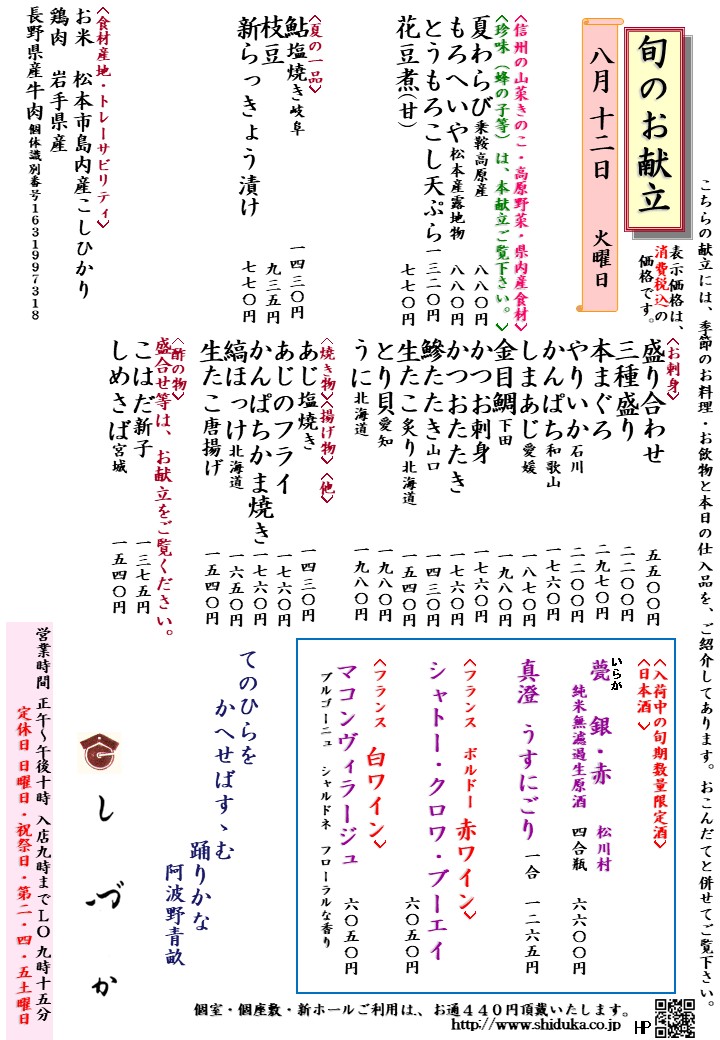 こちらの献立には、季節のお料理・お飲物と本日の仕入品を、ご紹介してあります。おこんだてと併せてご覧下さい。
旬のお献立
表示価格は、
消費税込の
価格です。
八月十二日　火曜日
〈信州の山菜きのこ・高原野菜・県内産食材〉
〈珍味（蜂の子等）は、本献立ご覧下さい。〉
夏わらび 乗鞍高原産　八八〇円
もろへいや 松本産露地物　八八〇円
とうもろこし天ぷら　一三二〇円
花豆煮（甘）　七七〇円
〈夏の一品〉
鮎塩焼き 岐阜　一四三〇円
枝豆　九三五円
新らっきょう漬け　七七〇円
〈食材産地・トレーサビリティ〉
お米　松本市島内産こしひかり
鶏肉　岩手県産
長野県産牛肉 個体識別番号1631997318
〈お刺身〉
盛り合わせ　五五〇〇円
三種盛り　二二〇〇円
本まぐろ　二九七〇円
やりいか 石川　二二〇〇円
かんぱち 和歌山　一七六〇円
しまあじ 愛媛　一八七〇円
金目鯛 下田　一九八〇円
かつお刺身　一七六〇円
かつおたたき　一七六〇円
鯵たたき 山口　一四三〇円
生たこ炙り 北海道　一五四〇円
とり貝 愛知　一九八〇円
うに 北海道　一九八〇円
〈焼き物〉〈揚げ物〉〈他〉
あじ塩焼き　一四三〇円
あじのフライ　一七六〇円
かんぱちかま焼き　一七六〇円
縞ほっけ 北海道　一六五〇円
生たこ唐揚げ　一五四〇円
〈酢の物〉
盛合せ等は、お献立をご覧ください。
こはだ新子　一三七五円
しめさば 宮城　一五四〇円
〈入荷中の旬期数量限定酒〉
〈日本酒〉
いらか
甍　銀・赤　松川村
純米無濾過生原酒　四合瓶　六六〇〇円
真澄　うすにごり　一合　一二六五円
〈フランス　ボルドー　赤ワイン〉
シャトー・クロワ・ブーエイ
六〇五〇円
〈フランス　白ワイン〉
マコンヴィラージュ　六〇五〇円
ブルゴーニュ　シャルドネ　フローラルな香り
てのひらを
かへせばすゝむ
踊りかな
阿波野青畝
しづか
営業時間 正午～午後十時　入店九時まで LO 九時十五分
定休日 日曜日・祝祭日・第二・四・五土曜日
個室・個座敷・新ホールご利用は、お通４４０円頂戴いたします。
http://www.shiduka.co.jp　HP